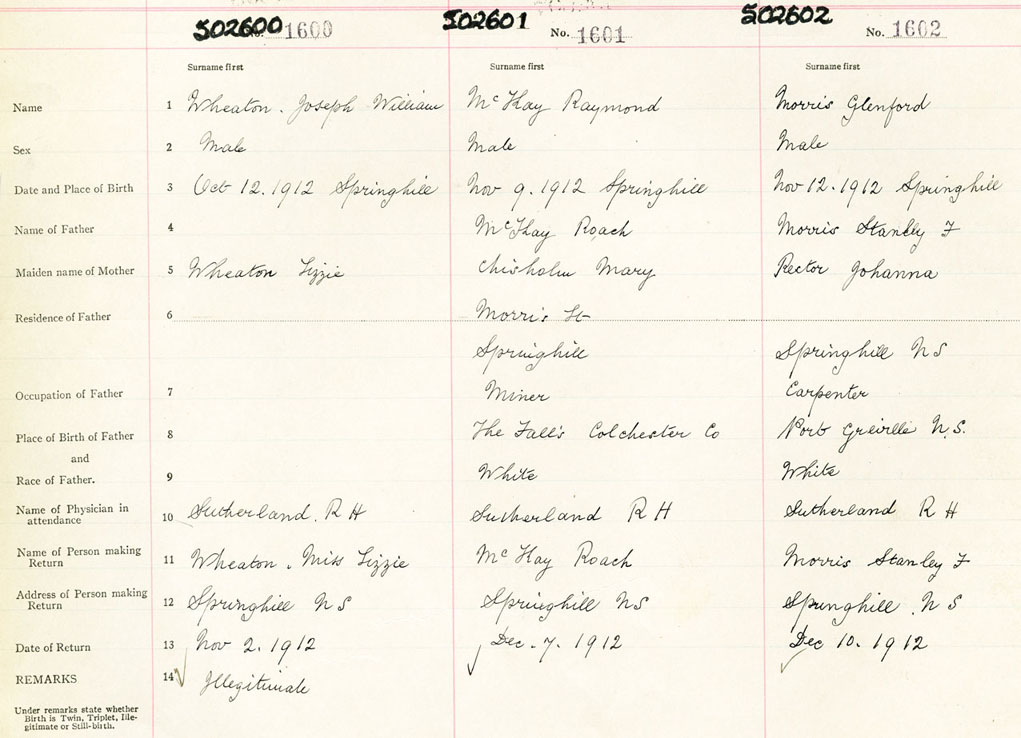 502600 502601 502602
No. 1600 No. 1601 No. 1602
Surname first Surname first Surname first
Name 1 Wheaton. Joseph William McKay Raymond Morris Glenford
Sex 2 Male Male Male
Date and Place of Birth 3 Oct 12.1912 Springhill Nov 9.1912 Springhill Nov 12.1912 Springhill
Name of Father 4 McKay Roach Morris Stanley F
Maiden name of Mother 5 Wheaton Lizzie Chisholm Mary Rector Johanna
Residence of Father 6 Morris St
Springhill Springhill N S
Occupation of Father 7 Miner Carpenter
Place of Birth of Father 8 The Falls Colchester Co Port Greville N.S.
and
Race of Father. 9 White White
Name of Physician in
attendance 10 Sutherland. R H Sutherland R H Sutherland R H
Name of Person making
Return 11 Wheaton. Miss Lizzie McKay Roach Morris Stanley F
Address of Person making
Return 12 Springhill N S Springhill NS Springhill. N S
Date of Return 13 Nov 2.1912 Dec. 7. 1912 Dec 10.1912
REMARKS 14 Illegitimate
Under remarks state whether
Birth is Twin, Triplet, Ille-
gitimate or Still-birth.